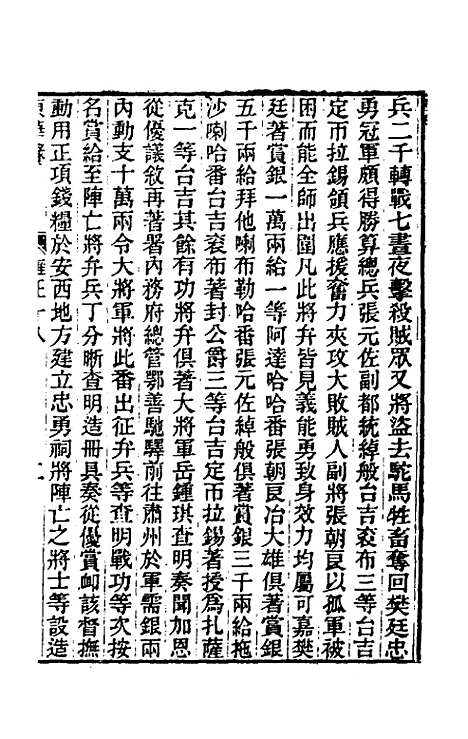 兵二千轉戰七晝夜擊殺賊眾又將盜去駝馬牲畜奪回樊廷忠
勇冠軍頗得勝算總兵張元佐副都統綽般台吉袞布三等台吉
定帀拉錫領兵應援奮力夾攻大敗賊人副將張朝良以孤軍被
困而能全師出圍凡此將弁皆見義能勇致身效力均屬可嘉樊
廷著賞銀一萬兩給一等阿達哈哈番張朝良冶大雄俱著賞銀
五千兩給拜他喇布勒哈番張元佐綽般俱著賞銀三千兩給拖
沙喇哈番台吉袞布著封公爵三等台吉定帀拉錫著授爲扎薩
克一等台吉其餘有功將弁俱著大將軍岳鍾琪查明奏聞加恩
從優議敘再著署內務府總管鄂善馳驛前往肅州於軍需銀兩
內動支十萬兩令大將軍將此番出征弁兵等查明戰功等次按
名賞給至陣亡將弁兵丁分晰查明造冊具奏從優賞卹該督撫
動用正項錢糧於安西地方建立忠勇祠將陣亡之將士等設造
東華錄 雍正十八